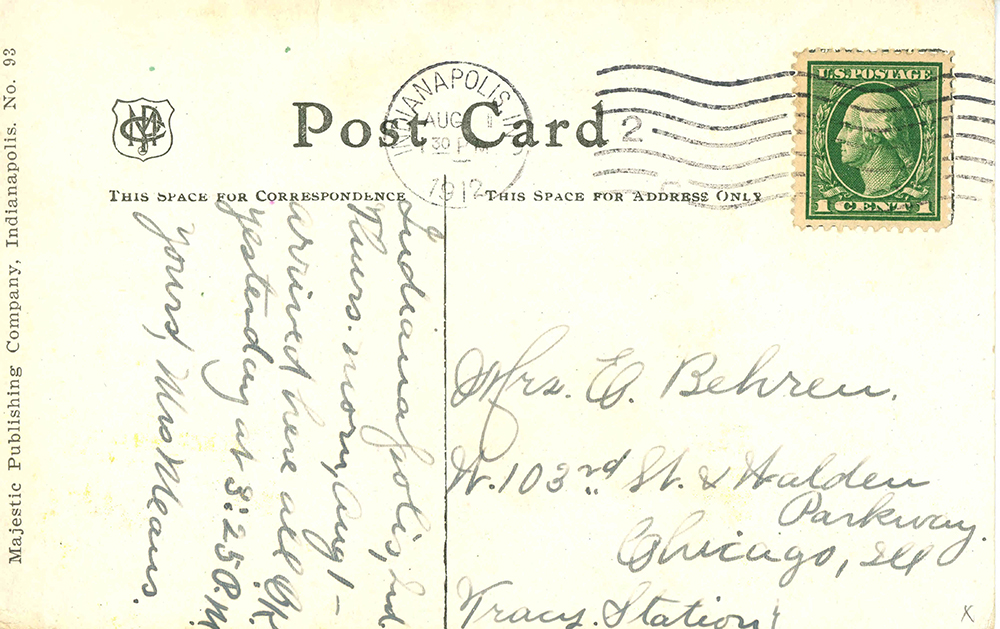 Majestic Publishing Company, Indianapolis. No. 93
Post Card
INDIANAPOLIS, IND
AUG 1
30 PM
1912
2
U.S. POSTAGE
1 CENT 1
THIS SPACE FOR CORRESPONDENCE
THIS SPACE FOR ADDRESS ONLY
Indianapolis, Ind.
Thurs. morn, Aug 1 –
arrived here all OK
yesterday at 3:25 P.M.
Yours, Mrs Means.
Mrs. E. Behren.
W. 103rd St. & Walden
Parkway.
Chicago, Ill
Tracy Station
x